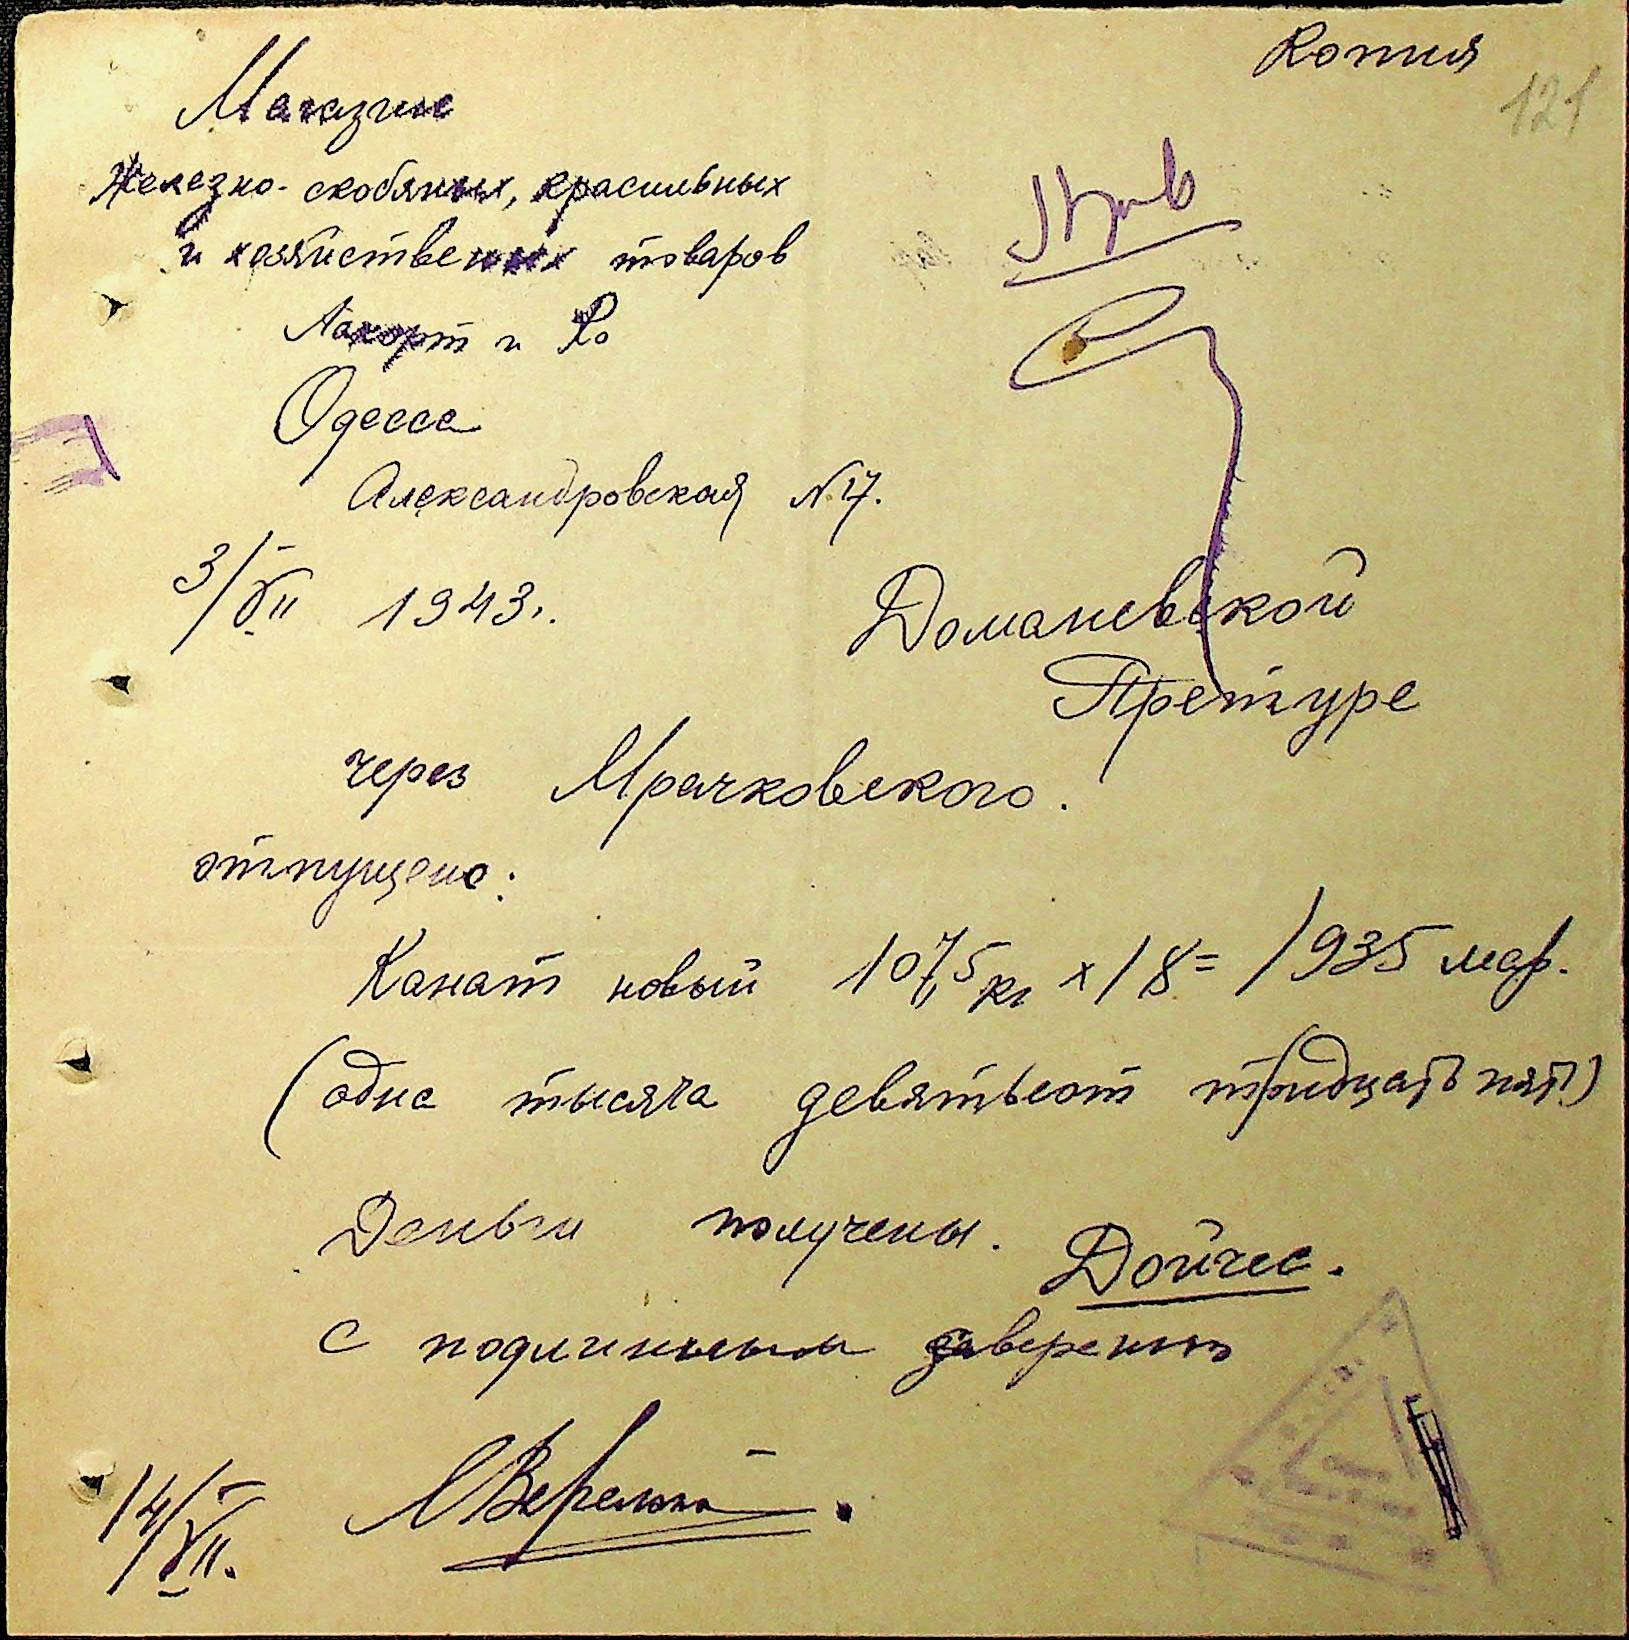 Копия
121
Магазин
Железно-скобяных, красильных
и хозяйственных товаров
и Ко
Одесса
Александровская N 17.
3/VII 1943.
Доманевской
Претуре
через Мрачковского.
отпущено:
Канат новый 107,5 кг x 18 = 1935 мар.
(одна тысяча девятьсот тридцать пять)
Деньги получены. Дойчес.
С подлинным заверено
14/VII.